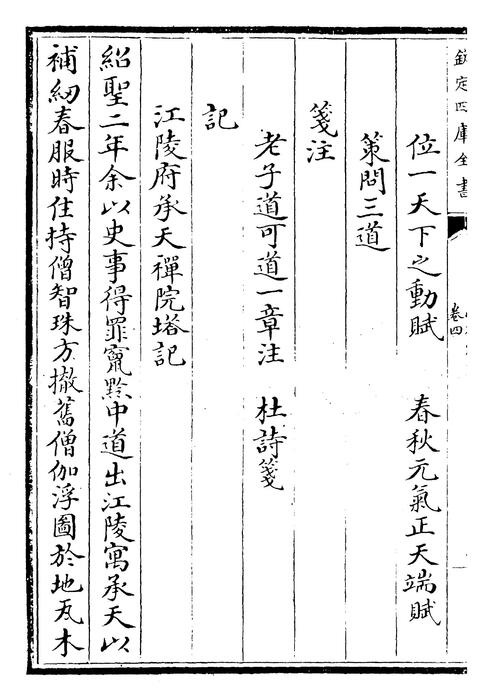 欽定四庫全書
卷四
位一天下之動賦 春秋元氣正天端賦
策問三道
箋注
老子道可道一章注 杜詩箋
記
江陵府承天禪院塔記
紹聖二年余以史事得罪竄黔中道出江陵寓承天以
補紉春服時住持僧智珠方撤舊僧伽浮圖於地瓦木